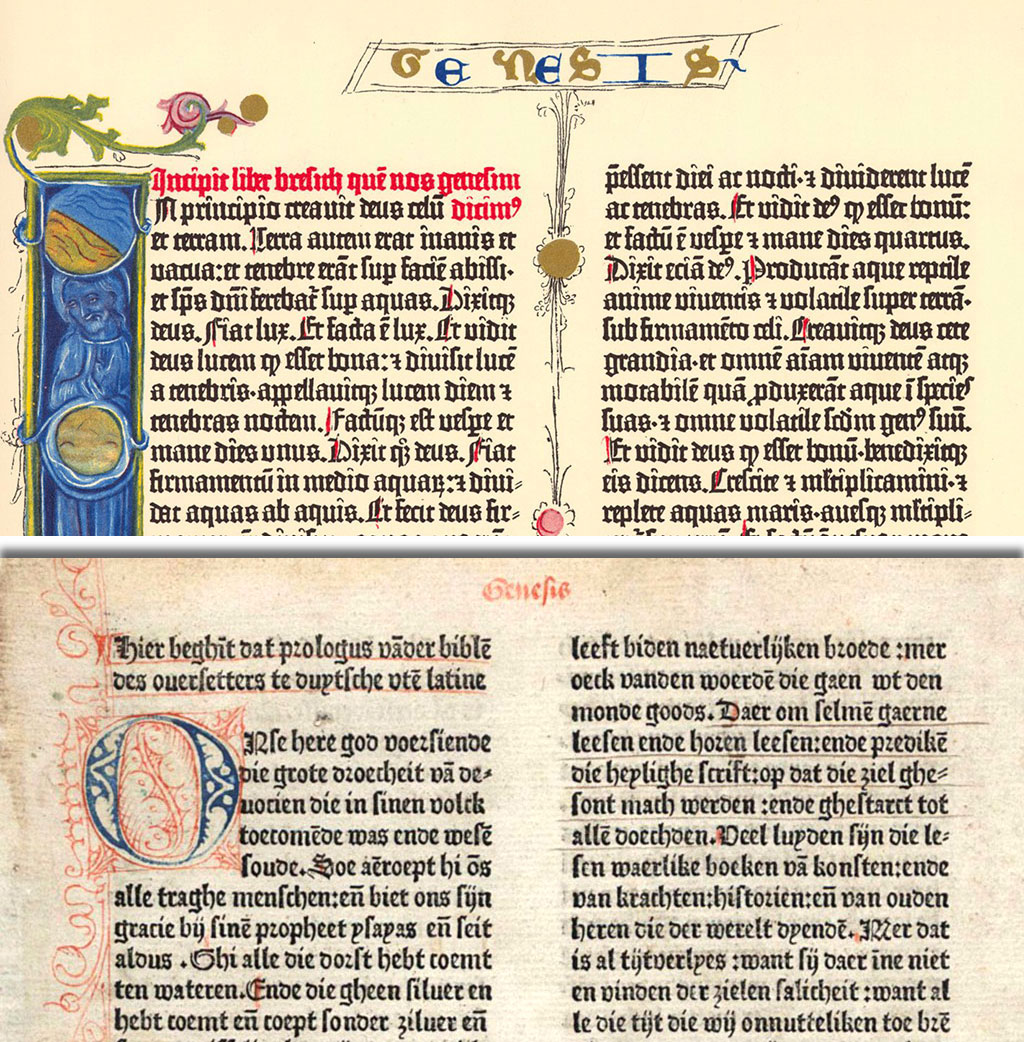 GENESIS
Incipit liber bresith quē nos genesim
N principio creavit deus celū dicimꝰ
et terram. Terra autem erat inanis et
vacua: et tenebre erāt sup faciē abissi·
et sp̄s dn̄i ferebat̄ sup aquas. Dixitqꝫ
deus. Fiat lux. Et facta ē lux. Et vidit
deus lucem ꝙ esset bona: ⁊ divisit lucē
a tenebris· appellavitqꝫ lucem diem ⁊
tenebras noctem. Factūqꝫ est vespe et
mane dies unus. Dixit qꝫ deus. Fiat
firmamentū in medio aquaꝝ: ⁊ divi⸗
dat aquas ab aquis. Et fecit deus fir⸗
p̄essent diei ac nocti· ⁊ dividerent lucē
ac tenebras. Et vidit deꝰ ꝙ esset bonū:
et factū ē vespe ⁊ mane dies quartus.
Dixit eciā deꝰ. Producāt aque reptile
anime viventis ⁊ volatile super terrā·
sub firmamēto celi. Creavitqꝫ deus cete
grandia· et omnē aīam viventē atqꝫ
motabilē quā ꝓduxerāt aque ī species
suas· ⁊ omne volatile scdm genꝰ suū.
Et vidit deus ꝙ esset bonū· benedixitqꝫ
eis dicens. Crescite ⁊ ml̄tiplicamini· ⁊
replete aquas maris· avesqꝫ ml̄tipli⸗
Genesis
Hier beghīt dat prologus vāder biblē
des ouersetters te duytsche vtē latine
ONse here god voersiende
die grote droecheit vā de⸗
uocien die in sinen volck
toecomēde was ende wesē
soude. Soe aēroept hi ōs
alle traghe menschen: eñ biet ons sijn
gracie bij sinē propheet ysayas eñ seit
aldus . Ghi alle die dorst hebt coemt
ten wateren. Ende die gheen siluer en
hebt coemt eñ coept sonder ziluer eñ
leeft biden naetuerlijken broede : mer
oeck vanden woerdē die gaen wt den
monde goods. Daer om selmē gaerne
leesen ende horen leesen: ende predikē
die heylighe scrift: op dat die ziel ghe⸗
sont mach werden : ende ghestarct tot
allē doechden. Veel luyden sijn die le⸗
sen waerlike boeken vā konsten: ende
van krachten: historien: eñ van ouden
heren die der werelt dyendē. Mer dat
is al tijtverlyes : want sij daer īne niet
en vinden der zielen salicheit : want al
le die tijt die wij onnutteliken toe brē